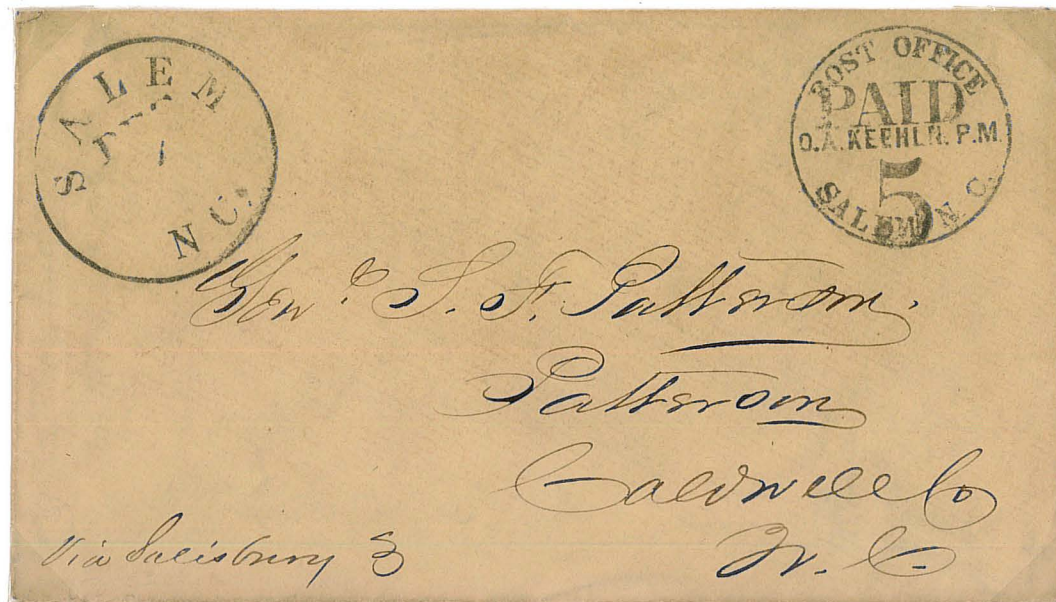 SALEM
N.C.
POST OFFICE
PAID
O.A. KEEHLN. P.M.
5
SALEM N.C.
Genl. S. F. Patterson.
Patterson
Caldwell Co
N. C.
Via Salisbury